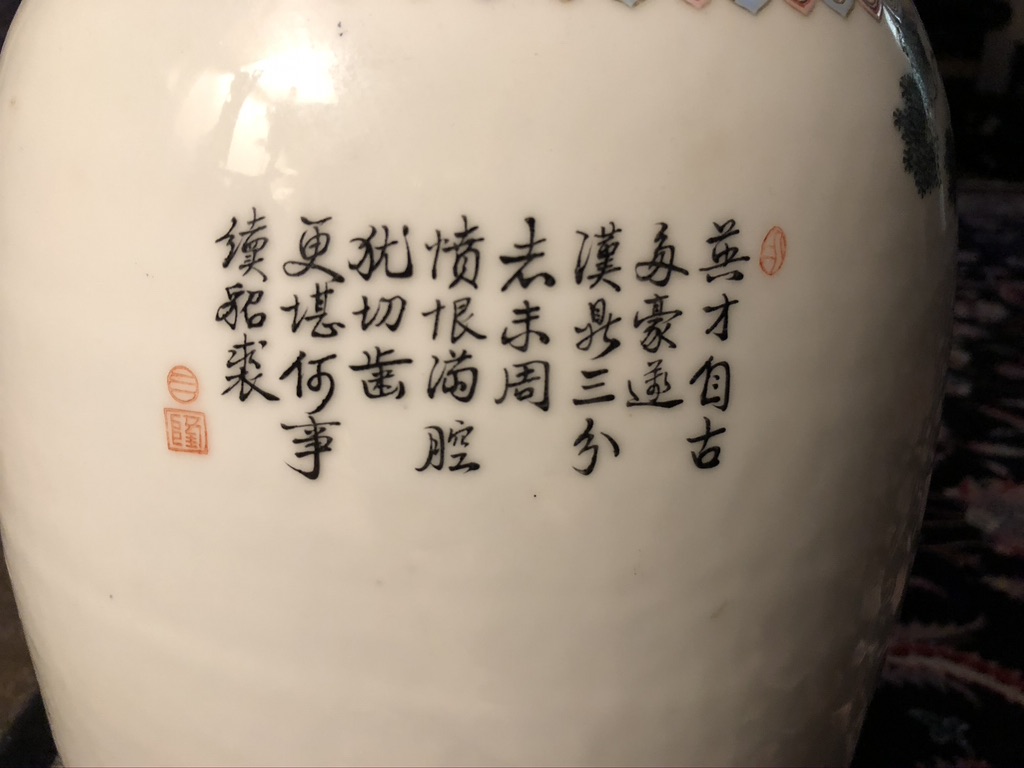 英才自古
多豪邁
漢鼎三分
志未周
愤恨满腔
犹切歯
更堪何事
續貂裘